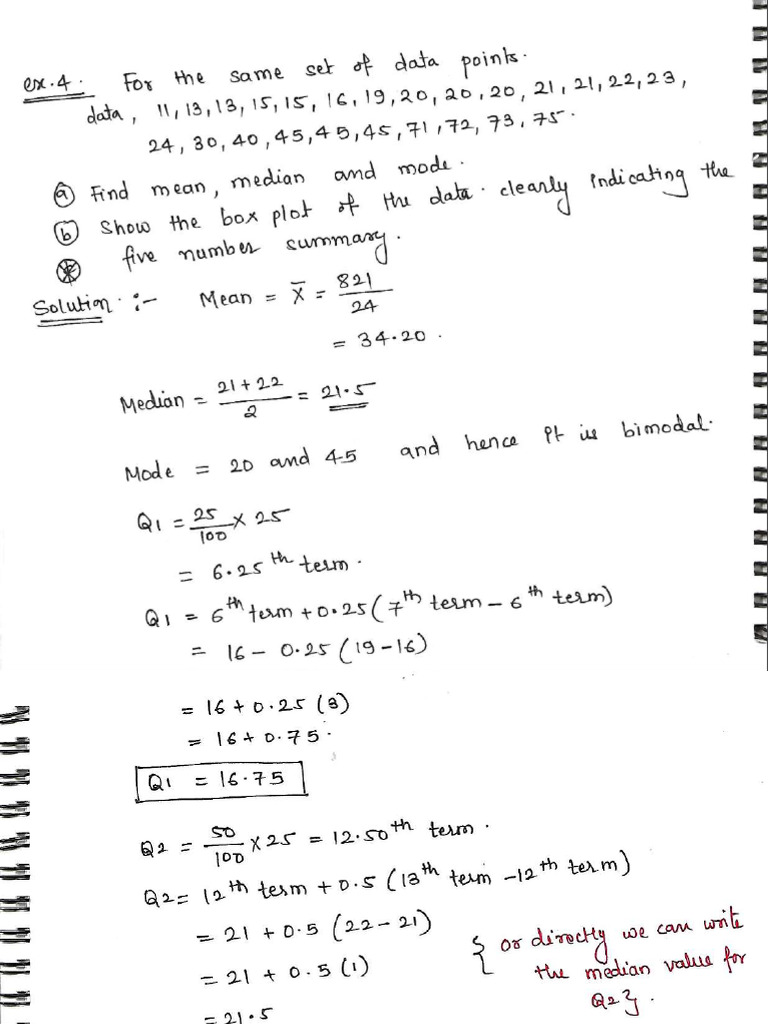 ex.4. For the same set of data points.
data, 11,13,13,15,15,16,19,20,20,20,21,21,22,23,
24,30,40,45,45,45,71,72,73,75.
(a) Find mean, median and mode.
(b) Show the box plot of the data. clearly indicating the
five number summary.
Solution :- Mean = x̄ = 821/24
= 34.20.
Median = (21+22)/2 = 21.5
Mode = 20 and 45 and hence it is bimodal.
Q1 = 25/100 × 25
= 6.25th term.
Q1 = 6th term + 0.25 (7th term – 6th term)
= 16 – 0.25 (19-16)
= 16 + 0.25 (3)
= 16 + 0.75.
Q1 = 16.75
Q2 = 50/100 × 25 = 12.50th term.
Q2 = 12th term + 0.5 (13th term – 12th term)
= 21 + 0.5 (22-21)
= 21 + 0.5 (1)
= 21.5
{ or directly we can write
the median value for
Q2 }.